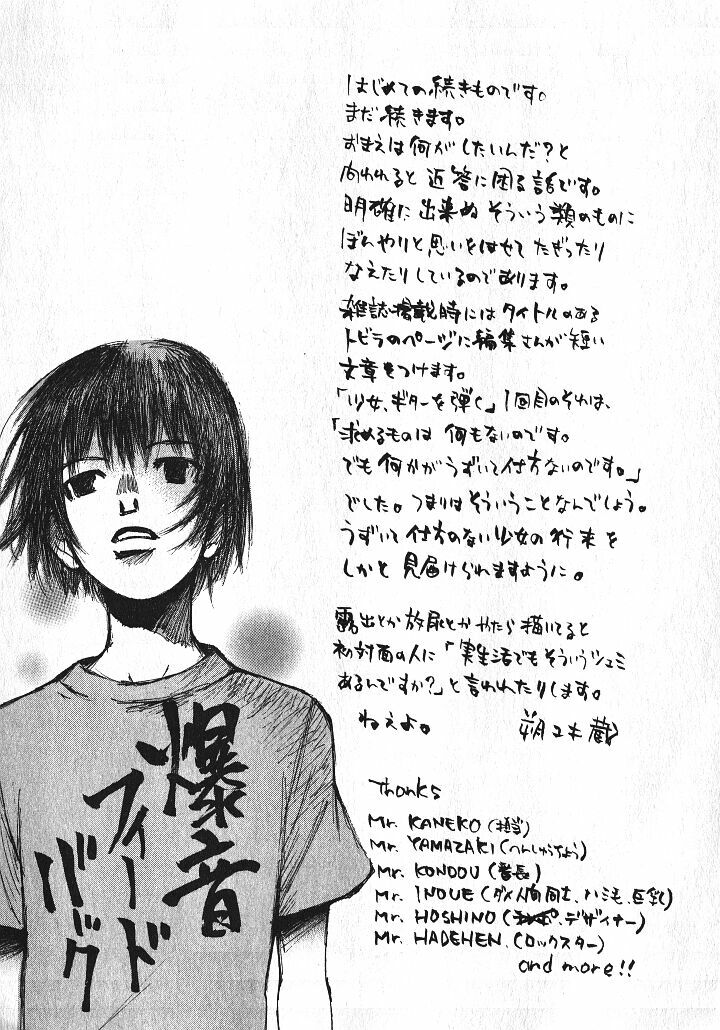 はじめての続きものです。
まだ続きます。
おまえは何がしたいんだ？と
問われると返答に困る話です。
明確に出来ぬそういう類のものに
ぼんやりと思いをはせてたぎったり
なえたりしているのであります。
雑誌掲載時にはタイトルのある
トビラのページに編集さんが短い
文章をつけます。
「少女、ギターを弾く」1回目のそれは、
「求めるものは何もないのです。
でも何かがうずいて仕方ないのです。」
でした。つまりはそういうことなんでしょう。
うずいて仕方のない少女の行末を
しかと見届けられますように。
露出とか放尿とかやたら描いてると
初対面の人に「実生活でもそういうシュミ
あるんですか？」と言われたりします。
ねぇよ。 朔ユキ蔵
Thanks
Mr. KANEKO（担当）
Mr. YAMAZAKI（へんしゅうちょう）
Mr. KONDOU（番長）
Mr. INOUE（ダメ人間同士、ハミ毛、巨乳）
Mr. HOSHINO（デザイナー）
Mr. HADEHEN（ロックスター）
and more!!
爆音
フィードバック